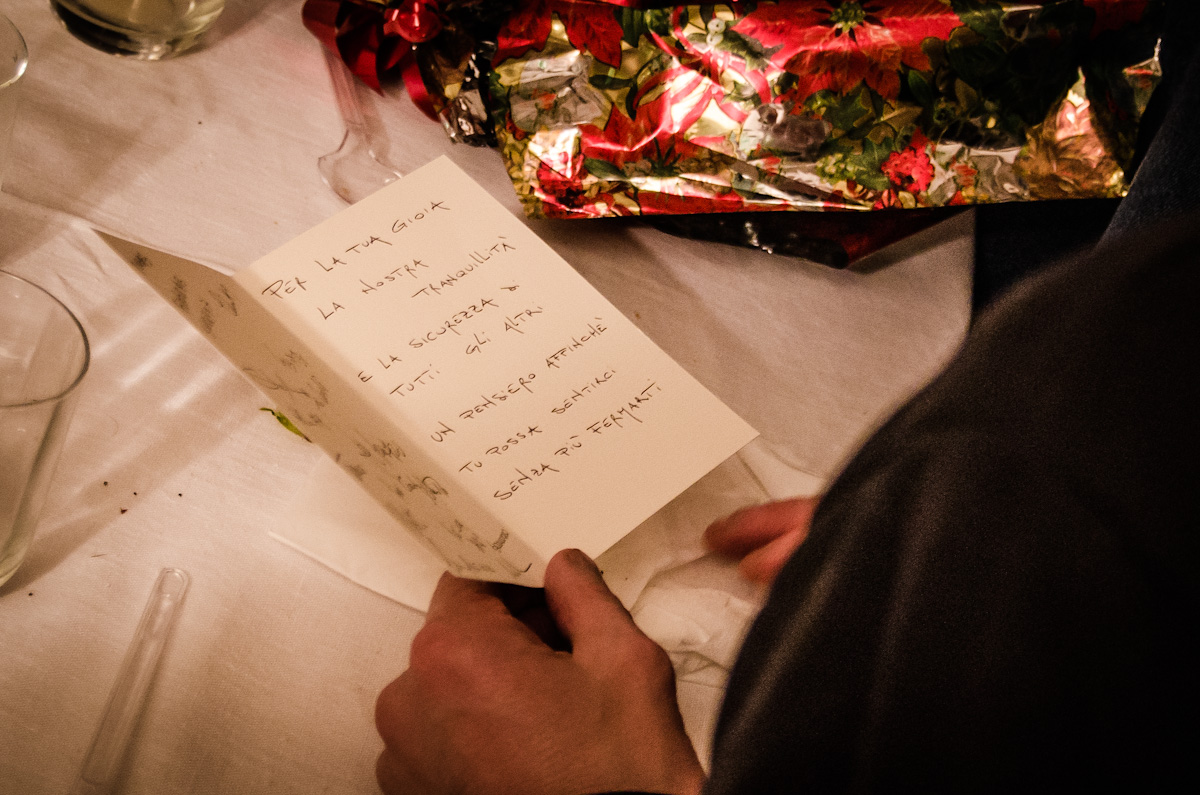 PER LA TUA GIOIA
LA NOSTRA
TRANQUILLITÀ
E LA SICUREZZA DI
TUTTI GLI ALTRI
UN PENSIERO AFFINCHÈ
TU POSSA SENTIRCI
SENZA PIÙ FERMARTI